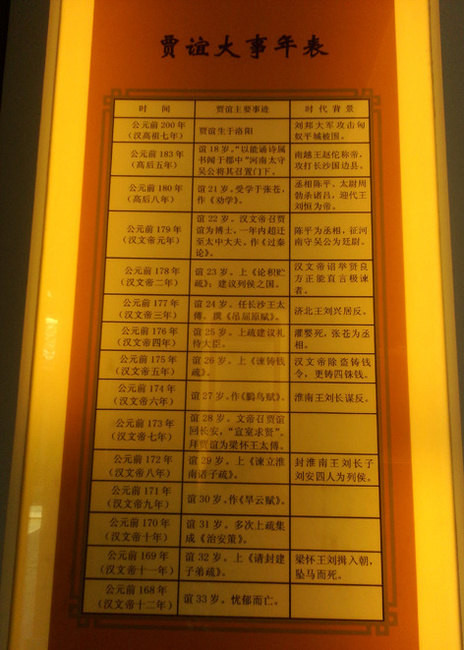 贾谊大事年表
时 间
贾谊主要事迹
时 代 背 景
公元前 200 年
（汉高祖七年）
贾谊生于洛阳
刘邦大军攻击匈
奴平城被围。
公元前 183 年
（高后五年）
谊 18 岁。“以能诵诗属
书闻于郡中”河南太守吴
公将其召置门下。
南越王赵佗称帝，
攻打长沙国边县。
公元前 180 年
（高后八年）
谊 21 岁，受学于张苍，
作《劝学》。
丞相陈平、太尉周
勃杀诸吕，迎代王
刘恒为帝。
公元前 179 年
（汉文帝元年）
谊 22 岁。汉文帝召贾
谊为博士，一年内超迁
至太中大夫。作《过秦
论》。
陈平为丞相，征河
南守吴公为廷尉。
公元前 178 年
（汉文帝二年）
谊 23 岁，上《论积贮
疏》，建议列侯之国。
汉文帝诏举贤良
方正能直言极谏
者。
公元前 177 年
（汉文帝三年）
谊 24 岁。任长沙王太
傅。撰《吊屈原赋》。
济北王刘兴居反。
公元前 176 年
（汉文帝四年）
谊 25 岁。上疏建议礼
待大臣。
灌婴死，张苍为丞
相。
公元前 175 年
（汉文帝五年）
谊 26 岁。上《谏铸钱
疏》。
汉文帝除盗铸钱
令，更铸四铢钱。
公元前 174 年
（汉文帝六年）
谊 27 岁。作《鵩鸟赋》。
淮南王刘长谋反。
公元前 173 年
（汉文帝七年）
谊 28 岁。文帝召贾谊
回长安，“宣室求贤”。
拜贾谊为梁怀王太傅。
公元前 172 年
（汉文帝八年）
谊 29 岁。上《谏立淮
南诸子疏》。
封淮南王刘长子
刘安四人为列侯。
公元前 171 年
（汉文帝九年）
谊 30 岁。作《旱云赋》。
公元前 170 年
（汉文帝十年）
谊 31 岁。多次上疏集
成《治安策》。
公元前 169 年
（汉文帝十一年）
谊 32 岁。上《请封建
子弟疏》。
梁怀王刘揖入朝，
坠马而死。
公元前 168 年
（汉文帝十二年）
谊 33 岁。忧郁而亡。